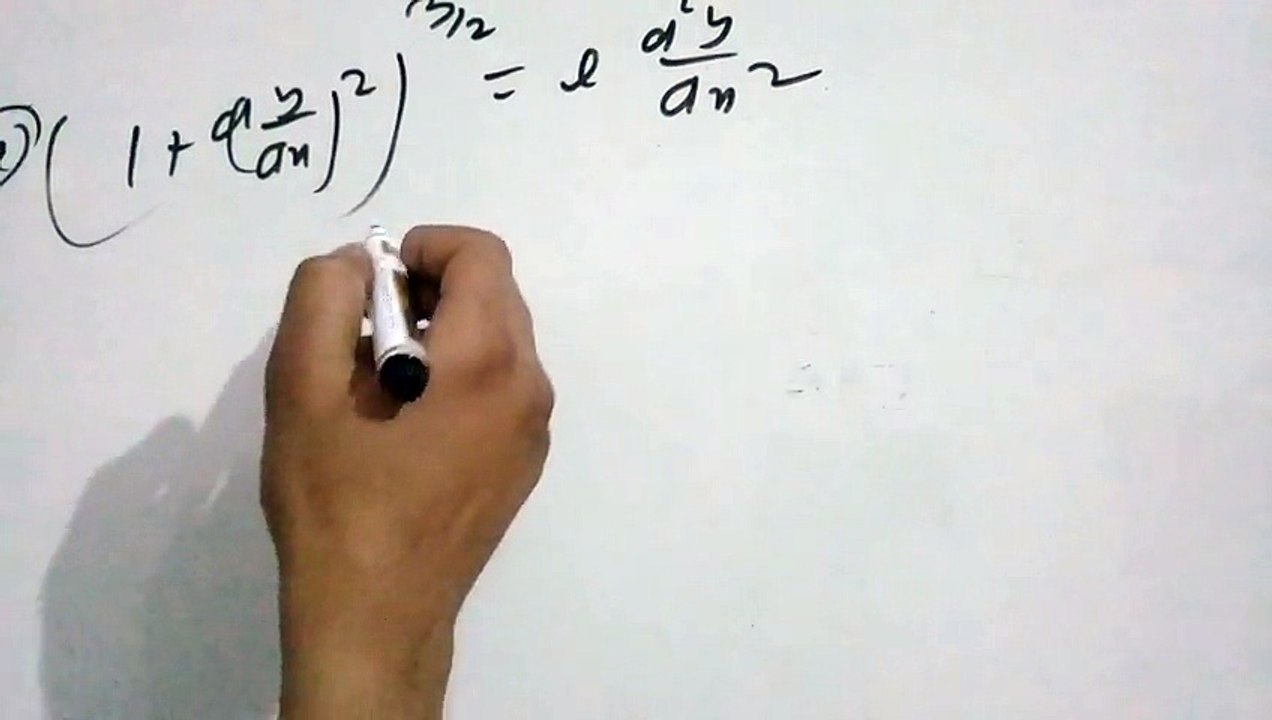 (1 + (dy/dx)^2)^3/2 = l d^2y/dx^2